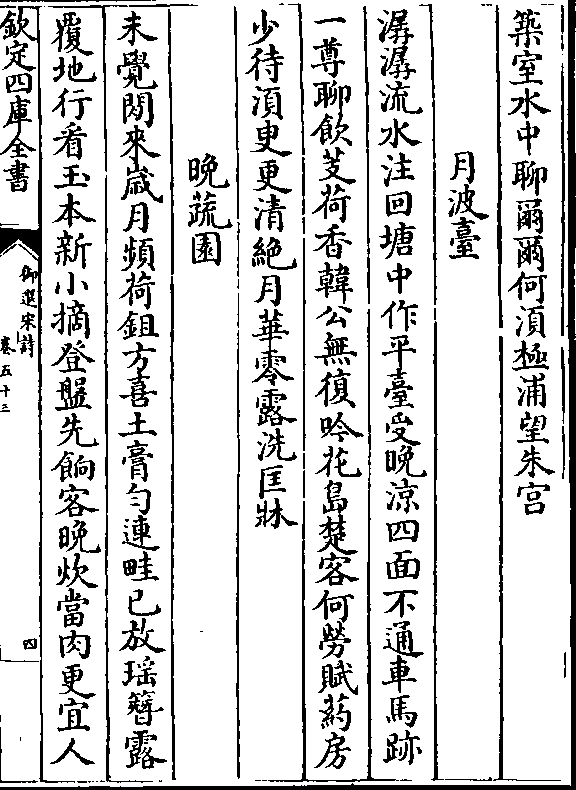 築室水中聊爾爾何湏極浦望朱宫
月波臺
潺潺流水注回塘中作平臺受晚涼四面不通車馬跡
一尊聊飲芰荷香韓公無復吟花島楚客何勞賦葯房
少待湏叟更清絶月華零露洗匡牀
晩蔬園
未覺閒來歳月頻荷鉏方喜土膏匀連畦已放瑶簪露
覆地行看玉本新小摘登盤先餉客晚炊當肉更宜人
欽定四庫全書
御選宋詩
卷五十三
四